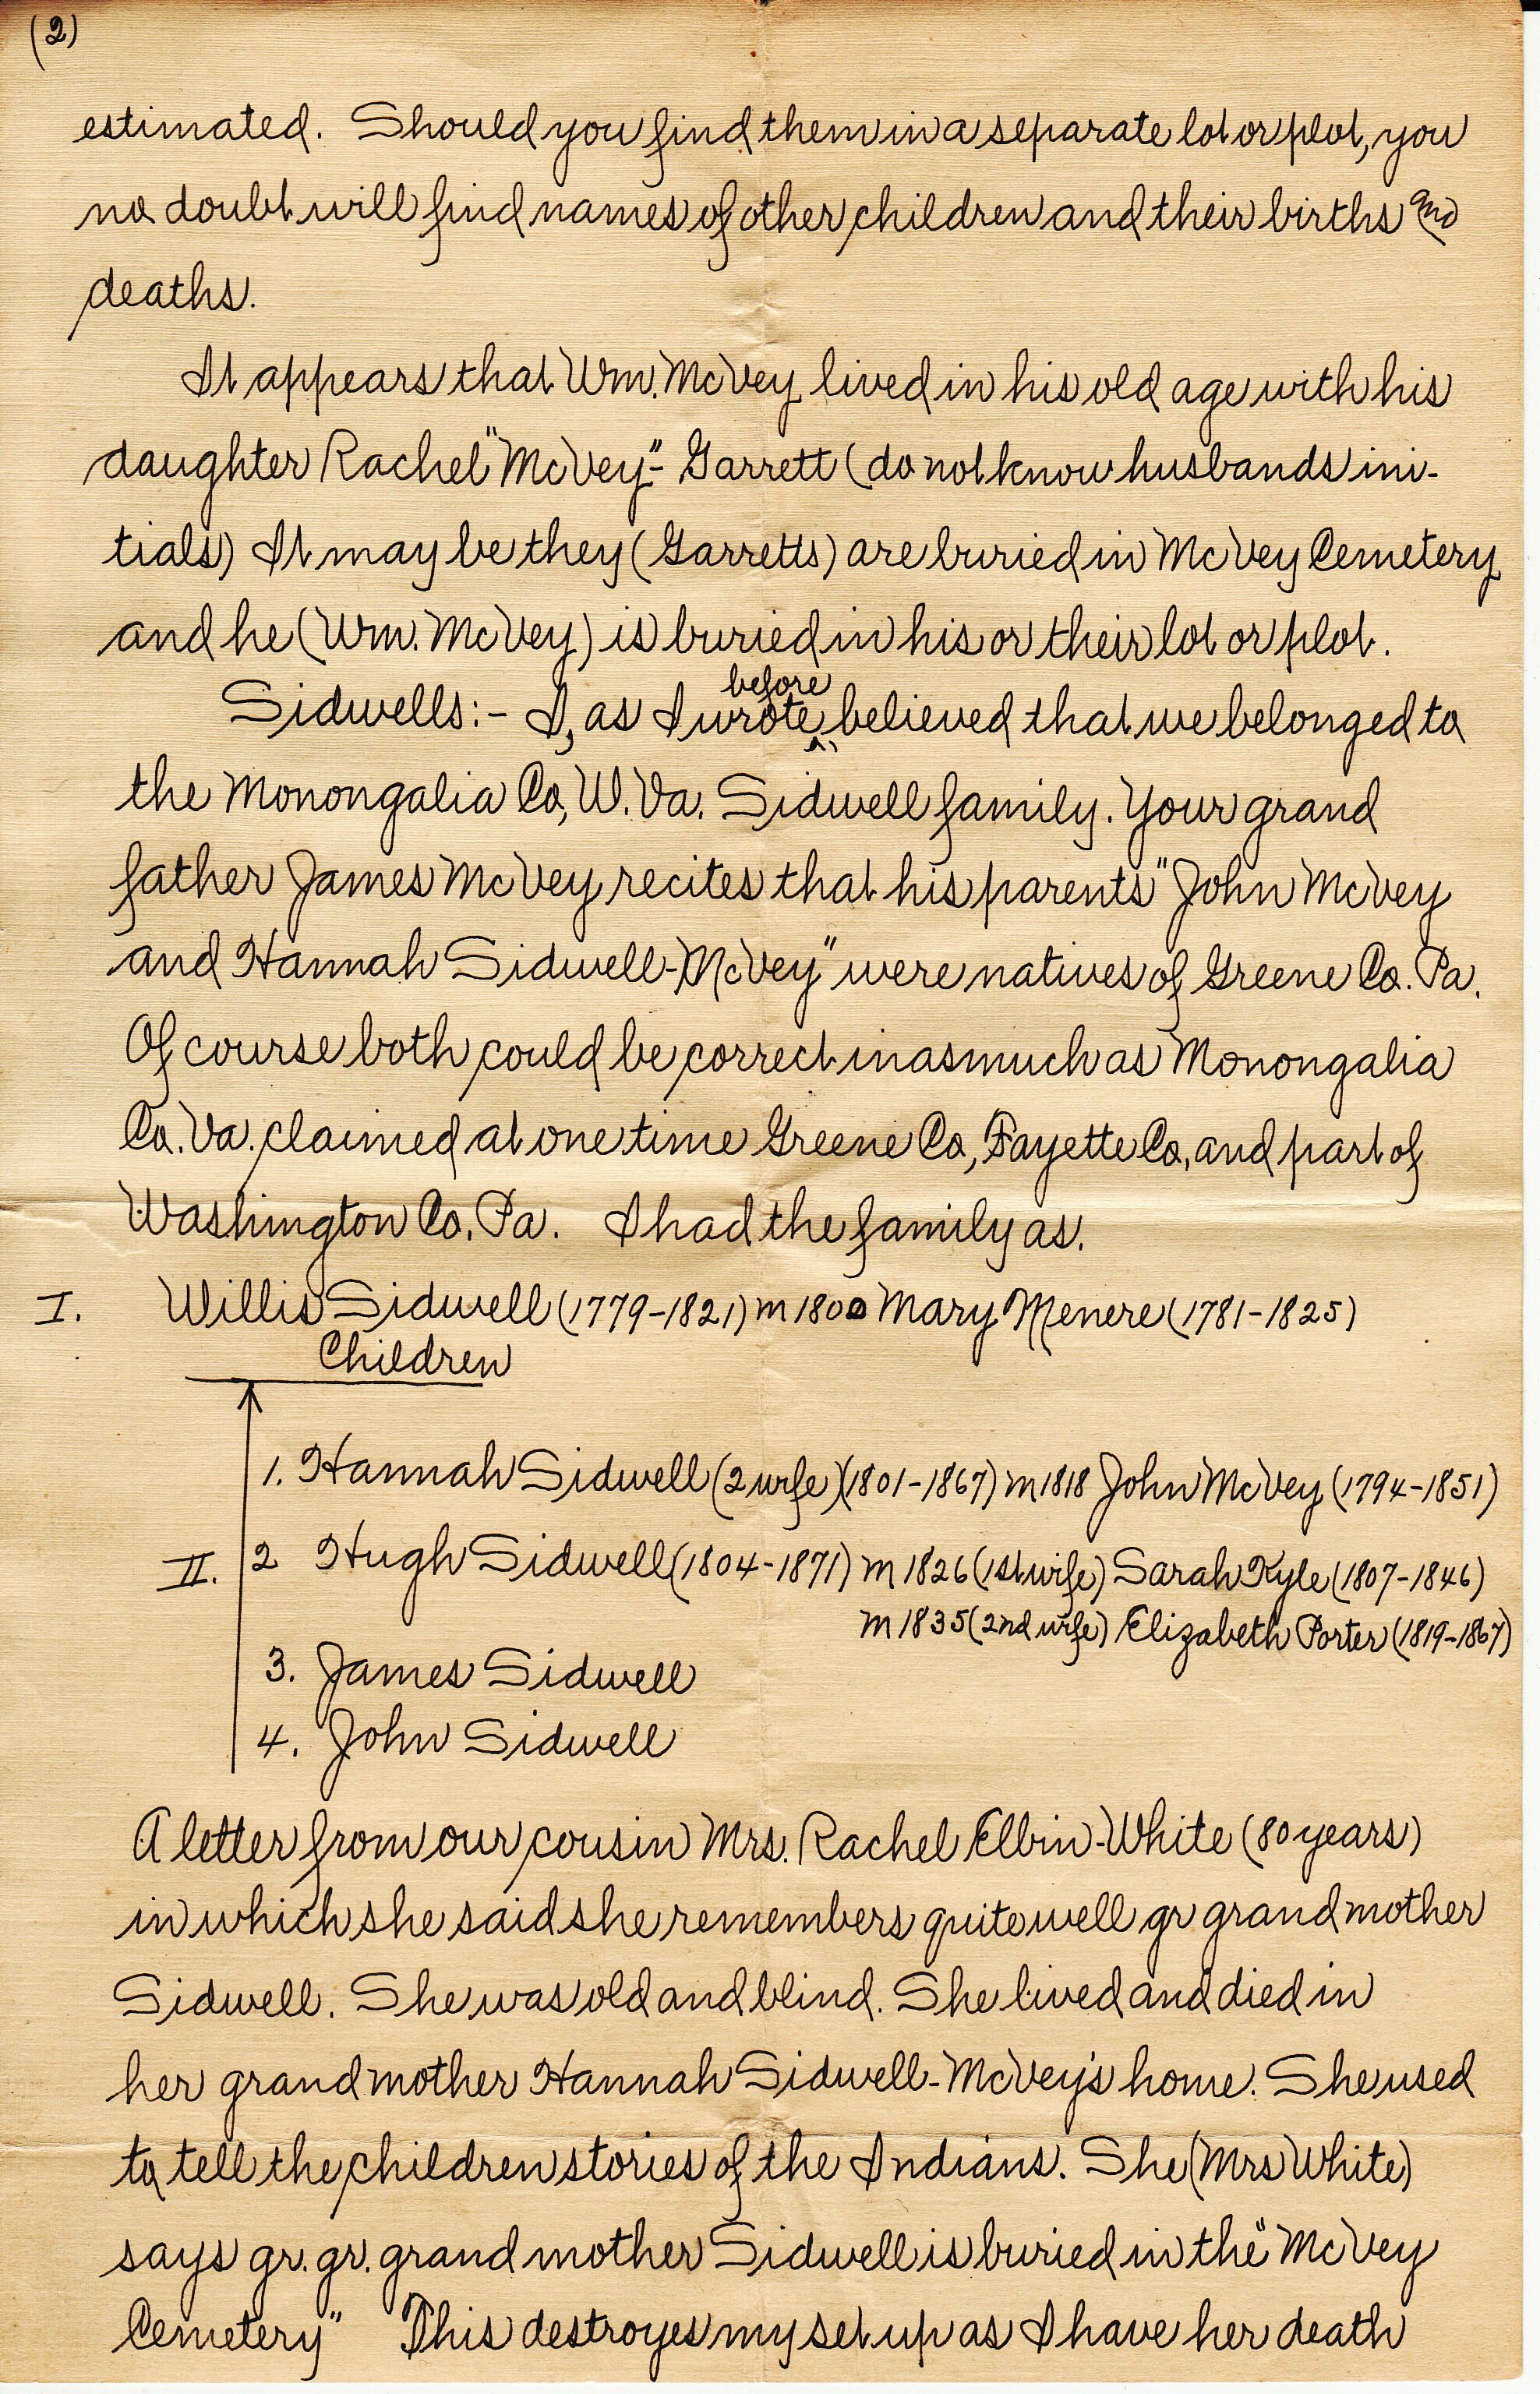 (2)
estimated. Should you find them in a separate lot or plot, you
no doubt will find names of other children and their births and
deaths.
It appears that Wm. McVey lived in his old age with his
daughter Rachel "McVey"- Garrett (do not know husbands ini-
tials) It may be they (Garretts) are buried in McVey Cemetery
and he (Wm. McVey) is buried in his or their lot or plot.
before
Sidwells:- I, as I wrote ^ believed that we belonged to
the Monongalia Co, W. Va. Sidwell family. Your grand
father James McVey recites that his parents "John McVey
and Hannah Sidwell-McVey" were natives of Greene Co. Pa.
Of course both could be correct inasmuch as Monongalia
Co. Va. claimed at one time Greene Co, Fayette Co, and part of
Washington Co. Pa. I had the family as.
I. Willis Sidwell (1779-1821) m 1800 Mary Menere (1781-1825)
Children
1. Hannah Sidwell (2 wife) (1801-1867) m 1818 John McVey (1794-1851)
II. 2 Hugh Sidwell (1804-1871) m 1826 (1st wife) Sarah Kyle (1807-1846)
m 1835 (2nd wife) Elizabeth Porter (1819-1867)
3. James Sidwell
4. John Sidwell
A letter from our cousin Mrs. Rachel Elbin-White (80 years)
in which she said she remembers quite well gr grand mother
Sidwell. She was old and blind. She lived and died in
her grand mother Hannah Sidwell-McVey's home. She used
to tell the children stories of the Indians. She (Mrs White)
says gr. gr. grand mother Sidwell is buried in the "McVey
Cemetery" This destroyes my set up as I have her death